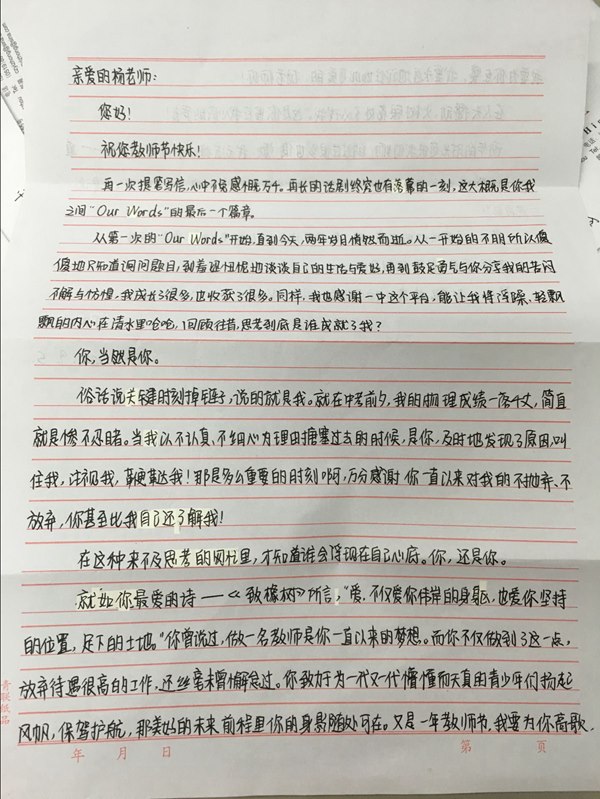 亲爱的杨老师：
您好！
祝您教师节快乐！
再一次提笔写信，心中不免感概万千。再长的话剧终究也有落幕的一刻，这大概是你我
之间“Our Words”的最后一个篇章。
从第一次的“Our Words”开始，直到今天，两年岁月悄然而逝。从一开始的不明所以傻
傻地只知道询问题目，到羞涩忸怩地谈谈自己的生活与爱好，再到鼓足勇气与你分享我的苦闷
不解与彷惶，我成长了很多，也收获了很多。同样，我也感谢一中这个平台，能让我将浮躁、轻飘
飘的内心在清水里呛呛，回顾往昔，思考到底是谁成就了我？
你，当然是你。
俗话说关键时刻掉链子，说的就是我。就在中考前夕，我的物理成绩一落千丈，简直
就是惨不忍睹。当我以不认真、不细心为理由搪塞过去的时候，是你，及时地发现了原因，叫
住我，注视我，鞭挞我！那是多么重要的时刻啊，万分感谢你一直以来对我的不抛弃、不
放弃，你甚至比我自己还了解我！
在这种来不及思考的网代里，才知道谁会浮现在自己心底。你，还是你。
就如你最爱的诗——《致橡树》所言，“爱，不仅爱你伟岸的身躯，也爱你坚持
的位置，足下的土地。”你曾说过，做一名教师是你一直以来的梦想。而你不仅做到了这一点，
放弃待遇很高的工作，还丝毫未曾懈怠过。你致力于为一代又一代懵懂而天真的青少年们扬起
风帆，保驾护航，那美好的未来前程里你的身影随处可在。又是一年教师节，我要为你高歌，
青联纸品
年 月 日 第 页